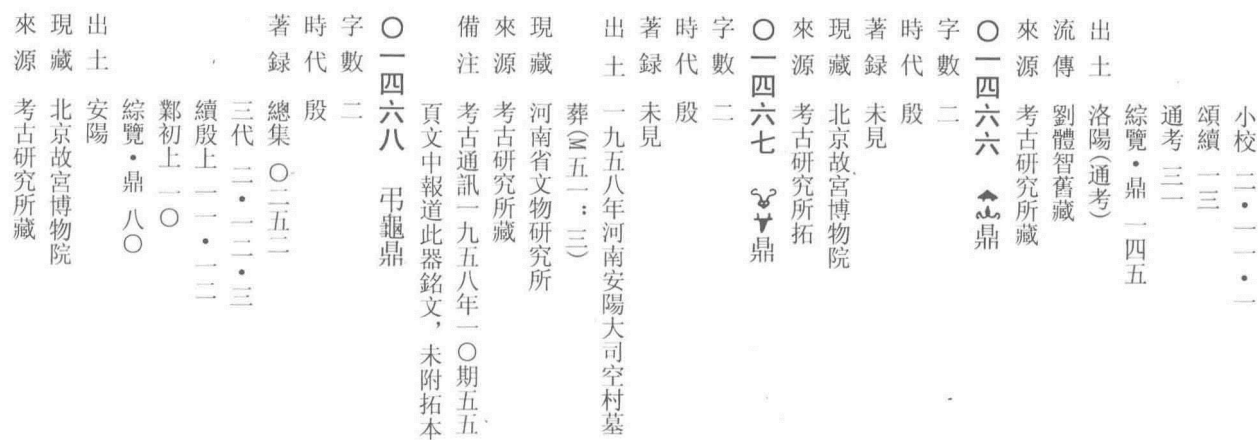 小校 二·一一·一
頌續 一三
通考 三一
綜覽·鼎 一四五
出土 洛陽(通考)
流傳 劉體智舊藏
來源 考古研究所藏
〇一四六六 鼎
字數 二
時代 殷
著録 未見
現藏 北京故宮博物院
來源 考古研究所拓
〇一四六七 鼎
字數 二
時代 殷
著録 未見
出土 一九五八年河南安陽大司空村墓
葬(M五一:三)
現藏 河南省文物研究所
來源 考古研究所藏
備注 考古通訊一九五八年一〇期五五
頁文中報道此器銘文,未附拓本
〇一四六八 弔龜鼎
字數 二
時代 殷
著録 總集 〇二五二
三代 二·一二·三
續殷上 一一·一二
鄴初上 一〇
綜覽·鼎 八〇
出土 安陽
現藏 北京故宮博物院
來源 考古研究所藏